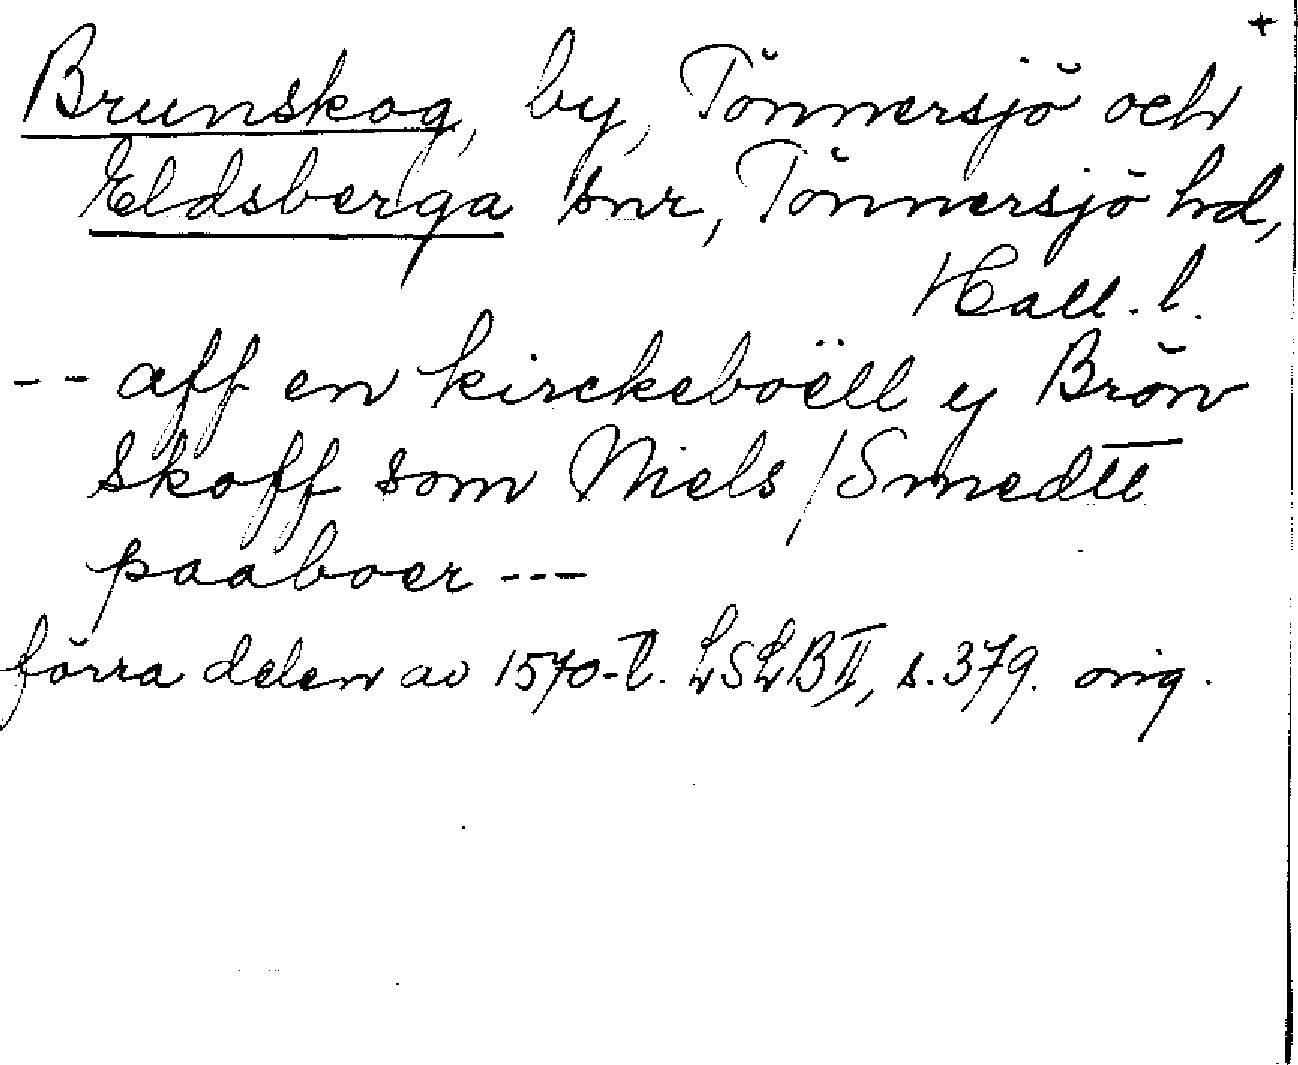 +
Brunskog, by, Tönnersjö och
Eldsberga snr, Tönnersjö hd,
Hall. l.
-- aff en kirckeboëll y Brön
skoff som Niels / Smedtt
paaboer ---
förra delen av 1570-t. LSLB II, s. 379. orig.